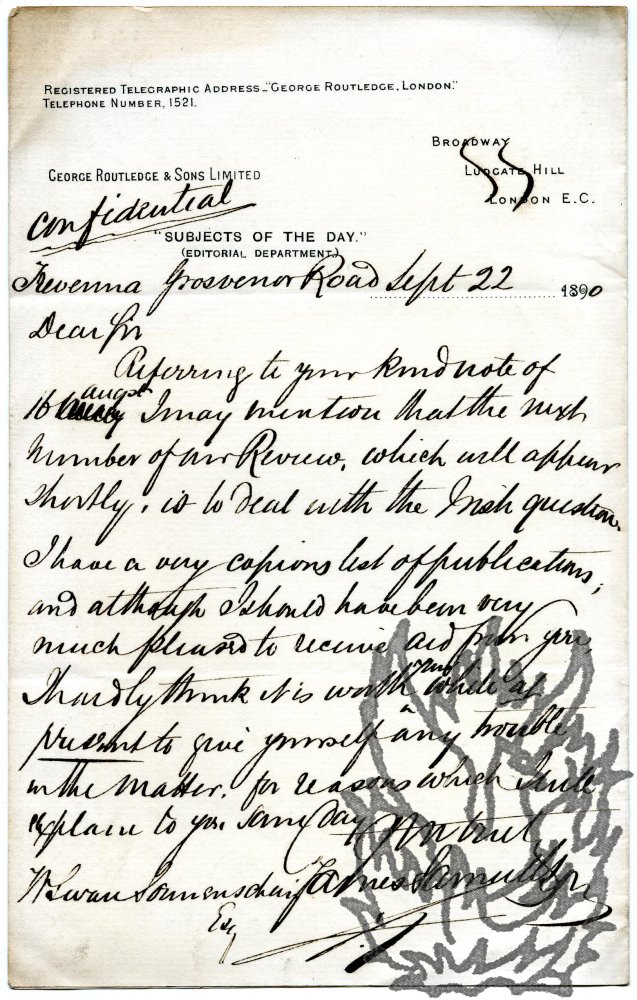 REGISTERED TELEGRAPHIC ADDRESS_"GEORGE ROUTLEDGE, LONDON."
TELEPHONE NUMBER, 1521.
BROADWAY
LUDGATE HILL
LONDON E.C.
GEORGE ROUTLEDGE & SONS LIMITED
Confidential
"SUBJECTS OF THE DAY."
(EDITORIAL DEPARTMENT.)
Grosvenor Road Sept 22 1890
Dear Sir
Referring to your kind note of
16 augst I may mention that the next
Number of our Review, which will appear
shortly, is to deal with the Irish question.
I have a very copious list of publications;
and although I should have been very
much pleased to receive aid from you,
I hardly think it is worth your while at
present to give yourself any trouble
in the matter, for reasons which I will
explain to you some day
W Swan Sonnenschein James Samuelson
Esq